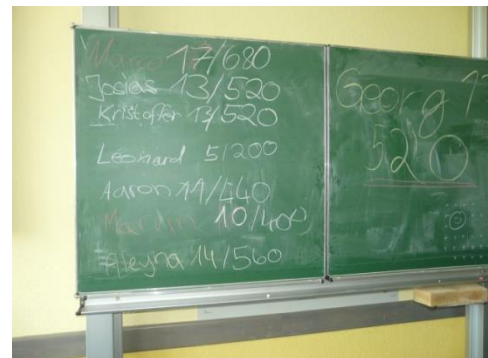 Marco 17/680
Josias 13/520
Kristoffer 13/520
Leonard 5/200
Aaron 11/440
Marvin 10/400
Aleyna 14/560
Georg 13
520